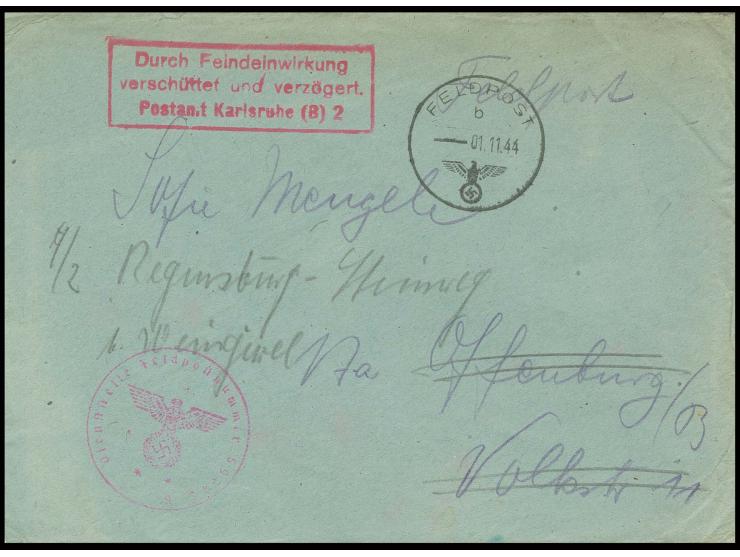 Durch Feindeinwirkung
verschüttet und verzögert.
Postamt Karlsruhe (B) 2
Feldpost
FELDPOST
b
01.11.44
Sofie Mengele
Regensburg-Steinweg
b.
Offenburg/B
Volkstr 11
Dienststelle Feldpostnummer